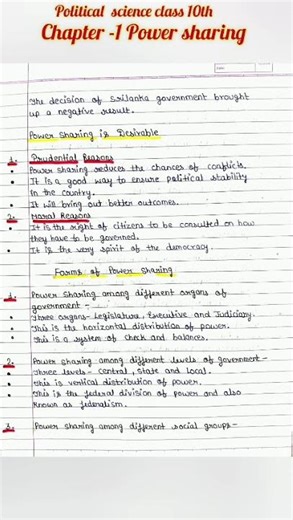 Political science class 10th
Chapter -1 Power sharing
The decision of Srilanka government brought
up a negative result.
Power Sharing is Desirable
1. Prudential Reasons
• Power sharing reduces the chances of conflicts.
• It is a good way to ensure political stability
in the country.
• It will bring out better outcomes.
2. Moral Reasons
• It is the right of citizens to be consulted on how
they have to be governed.
• It is the very spirit of the democracy.
Forms of Power Sharing
1. Power Sharing among different organs of
government -
• Three organs- Legislature, Executive and Judiciary.
• This is the horizontal distribution of power.
• This is a system of check and balances.
2. Power sharing among different levels of government-
• Three levels- central, state and local.
• This is vertical distribution of power.
• This is the federal division of power and also
known as federalism.
3. Power sharing among different social groups-